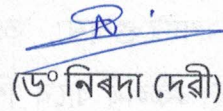 (ড° নিৰদা দেৱী)